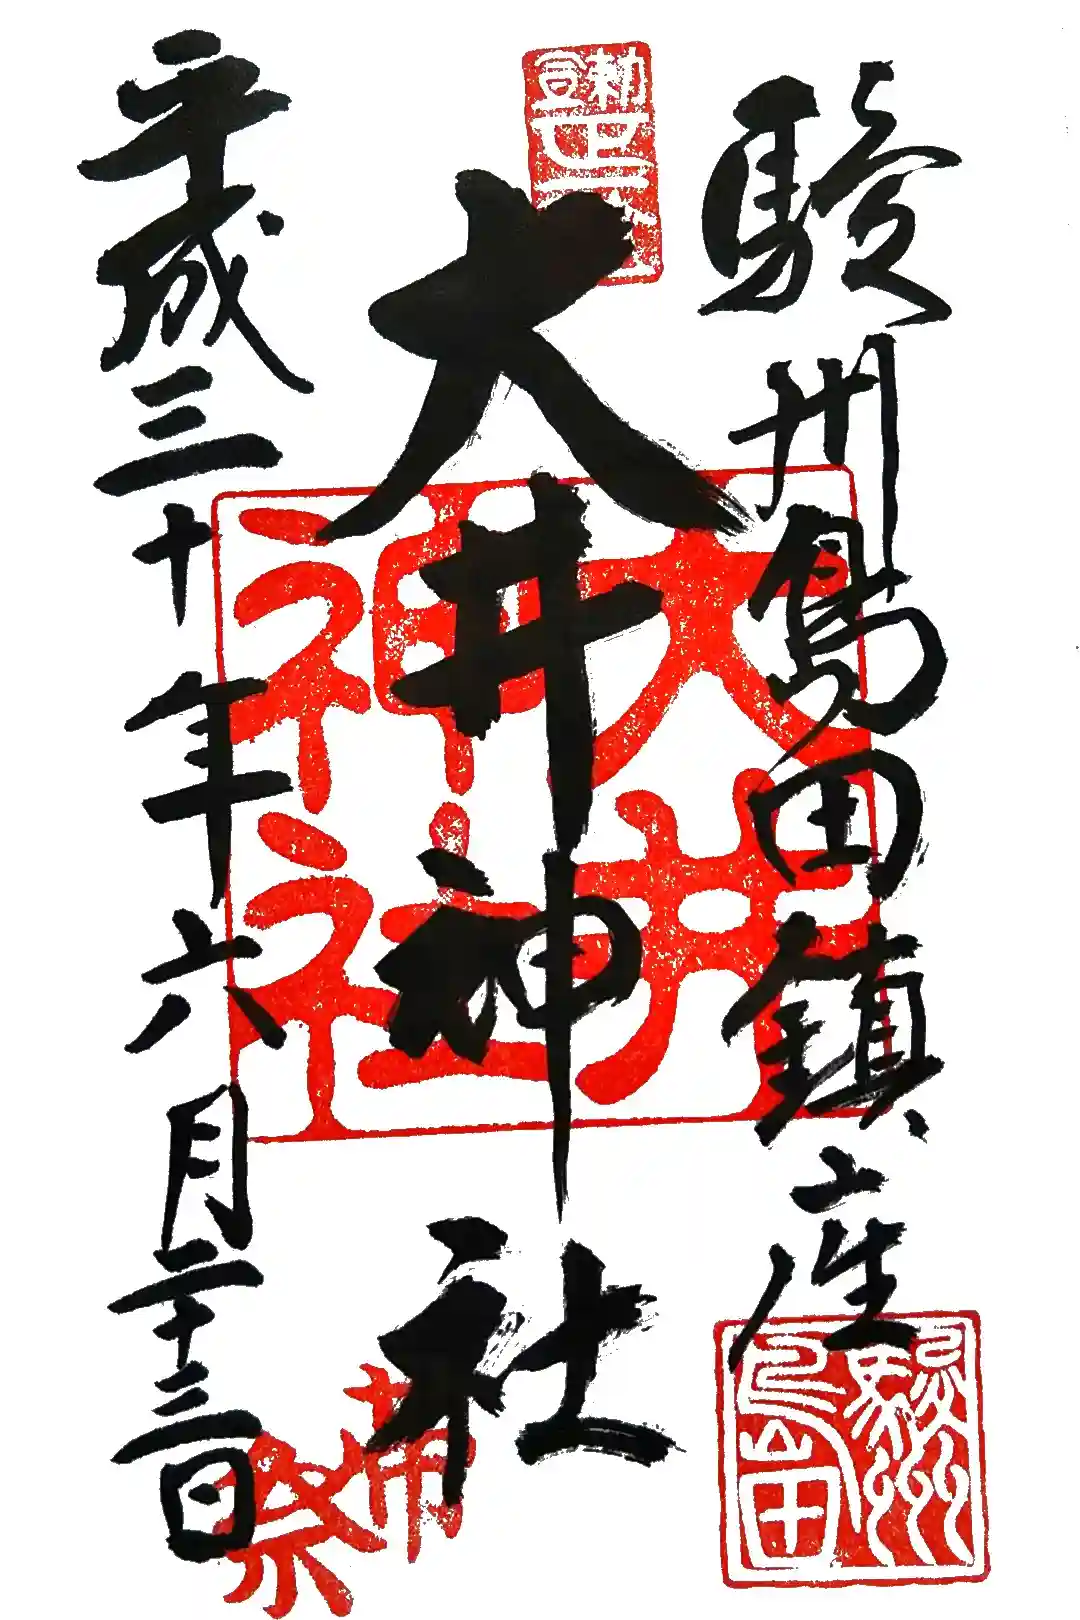 駿州島田鎮座
大井神社
平成三十年六月二十三日
大井
神社
駿州
島田
帯
祭